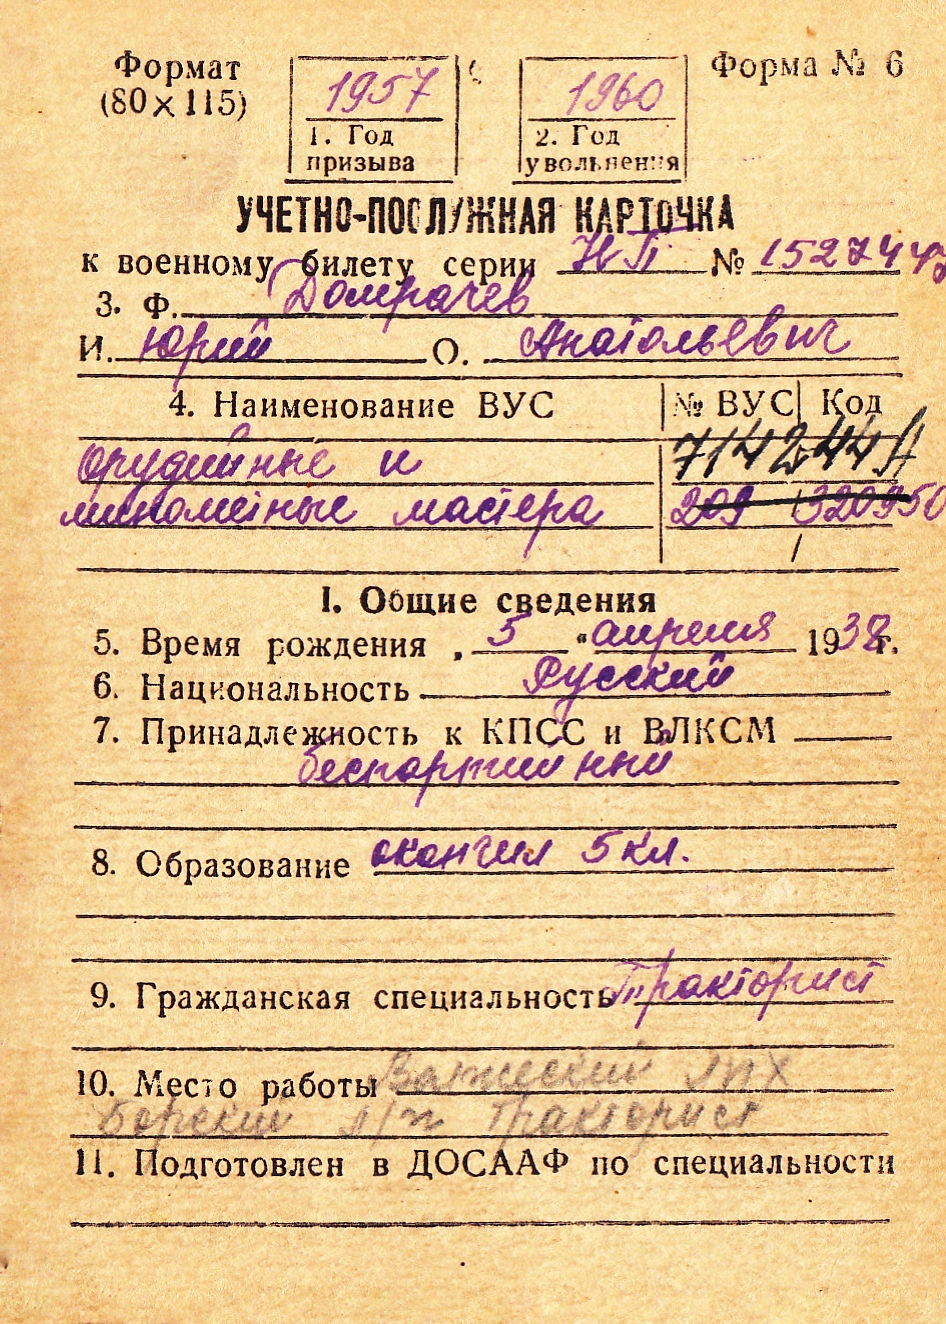 Формат
(80×115)
1957
1. Год
призыва
1960
2. Год
увольнения
Форма № 6
УЧЕТНО-ПОСЛУЖНАЯ КАРТОЧКА
к военному билету серии НП № 1527447
3. Ф. Домрачев
И. Юрий О. Анатольевич
4. Наименование ВУС № ВУС Код
орудийные и
минометные мастера 209
I. Общие сведения
5. Время рождения „ 5 “ апреля 1938 г.
6. Национальность Русский
7. Принадлежность к КПСС и ВЛКСМ
беспартийный
8. Образование окончил 5 кл.
9. Гражданская специальность Тракторист
10. Место работы ЛПХ
Борский л/п Тракторист
11. Подготовлен в ДОСААФ по специальности